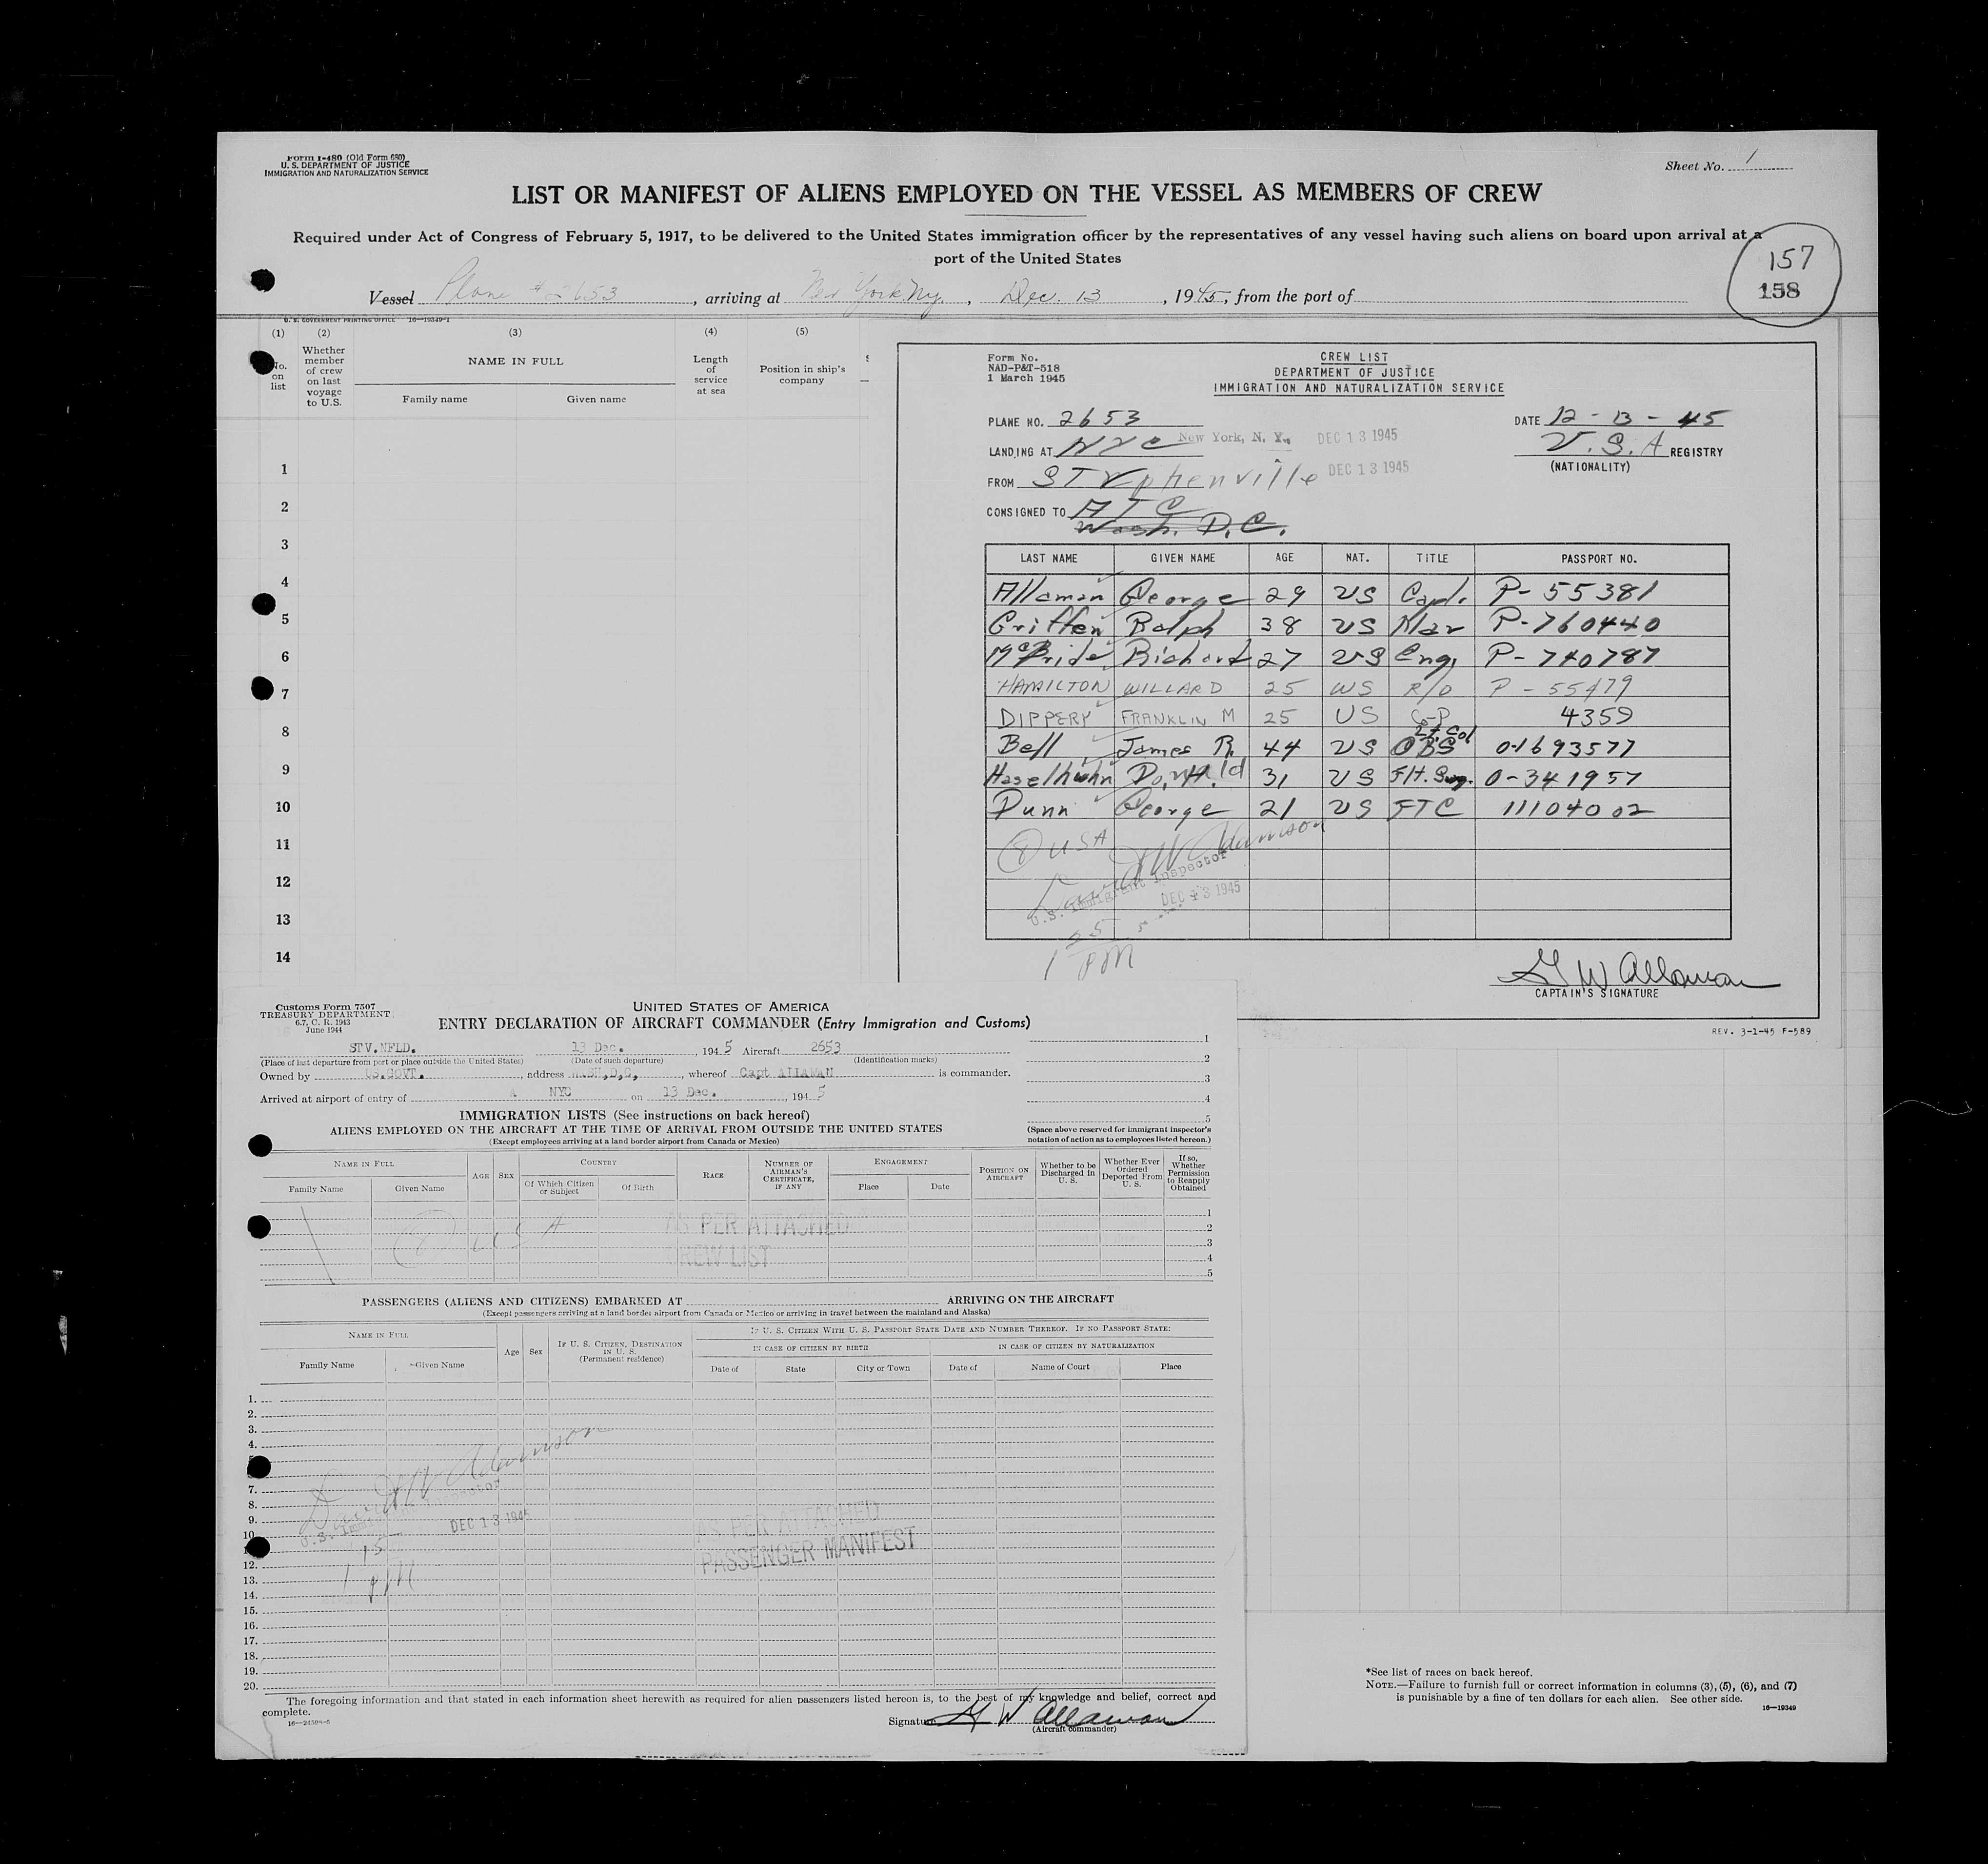 Form I-480 (Old Form 680)
U. S. DEPARTMENT OF JUSTICE
IMMIGRATION AND NATURALIZATION SERVICE
Sheet No. 1
LIST OR MANIFEST OF ALIENS EMPLOYED ON THE VESSEL AS MEMBERS OF CREW
Required under Act of Congress of February 5, 1917, to be delivered to the United States immigration officer by the representatives of any vessel having such aliens on board upon arrival at a
port of the United States
157
158
Vessel Plane # 2653, arriving at New York, N.Y., Dec. 13, 1945, from the port of
U. S. GOVERNMENT PRINTING OFFICE 16—19349-1
(1) (2) (3) (4) (5)
No. on list
Whether member of crew on last voyage to U.S.
NAME IN FULL
Family name Given name
Length of service at sea
Position in ship's company
1
2
3
4
5
6
7
8
9
10
11
12
13
14
Form No.
NAD-P&T-518
1 March 1945
CREW LIST
DEPARTMENT OF JUSTICE
IMMIGRATION AND NATURALIZATION SERVICE
PLANE NO. 2653 DATE 12-13-45
LANDING AT NYC New York, N. Y. DEC 13 1945 U.S.A REGISTRY
(NATIONALITY)
FROM STephenville DEC 13 1945
CONSIGNED TO ATC
Wash. D.C.
LAST NAME GIVEN NAME AGE NAT. TITLE PASSPORT NO.
Allaman George 29 US Capt. P-55381
Griffen Ralph 38 US Nav P-760440
McBride Richard 27 US Eng. P-740787
HAMILTON WILLARD 25 US R/O P-55479
DIPPERY FRANKLIN M 25 US Co-P 4359
Bell James R. 44 US Lt. Col OBS 0-1693577
Haselhuhn Donald 31 US Flt. Surg. O-341957
Dunn George 21 US FTC 11104002
(8) USA
J W Adamson
U.S. Immigrant Inspector
DEC 13 1945
1 25 PM
G W Allaman
CAPTAIN'S SIGNATURE
REV. 3-1-45 F-589
Customs Form 7507
TREASURY DEPARTMENT
6.7, C. R. 1943
June 1944
UNITED STATES OF AMERICA
ENTRY DECLARATION OF AIRCRAFT COMMANDER (Entry Immigration and Customs)
STV.NFLD. 13 Dec., 1945 Aircraft 2653
(Place of last departure from port or place outside the United States) (Date of such departure) (Identification marks)
Owned by US.GOVT., address WASH,D,C,, whereof Capt ALLAMAN is commander.
Arrived at airport of entry of NYC on 13 Dec., 1945
1
2
3
4
5
IMMIGRATION LISTS (See instructions on back hereof)
ALIENS EMPLOYED ON THE AIRCRAFT AT THE TIME OF ARRIVAL FROM OUTSIDE THE UNITED STATES
(Except employees arriving at a land border airport from Canada or Mexico)
(Space above reserved for immigrant inspector's
notation of action as to employees listed hereon.)
NAME IN FULL
Family Name Given Name
AGE SEX
COUNTRY
Of Which Citizen or Subject Of Birth
RACE
NUMBER OF AIRMAN'S CERTIFICATE, IF ANY
ENGAGEMENT
Place Date
POSITION ON AIRCRAFT
Whether to be Discharged in U. S.
Whether Ever Ordered Deported From U. S.
If so, Whether Permission to Reapply Obtained
1
2
3
4
5
(8) USA
AS PER ATTACHED
CREW LIST
PASSENGERS (ALIENS AND CITIZENS) EMBARKED AT ARRIVING ON THE AIRCRAFT
(Except passengers arriving at a land border airport from Canada or Mexico or arriving in travel between the mainland and Alaska)
NAME IN FULL
Family Name Given Name
Age Sex
IF U. S. CITIZEN, DESTINATION IN U. S.
(Permanent residence)
IF U. S. CITIZEN WITH U. S. PASSPORT STATE DATE AND NUMBER THEREOF. IF NO PASSPORT STATE:
IN CASE OF CITIZEN BY BIRTH IN CASE OF CITIZEN BY NATURALIZATION
Date of State City or Town Date of Name of Court Place
1.
2.
3.
4.
7.
8.
9.
10.
12.
13.
14.
15.
16.
17.
18.
19.
20.
J W Adamson
U.S. Immigrant Inspector
DEC 13 1945
1 15 PM
AS PER ATTACHED
PASSENGER MANIFEST
The foregoing information and that stated in each information sheet herewith as required for alien passengers listed hereon is, to the best of my knowledge and belief, correct and
complete.
Signature G W Allaman
(Aircraft commander)
*See list of races on back hereof.
NOTE.—Failure to furnish full or correct information in columns (3), (5), (6), and (7)
is punishable by a fine of ten dollars for each alien. See other side.
16—19349